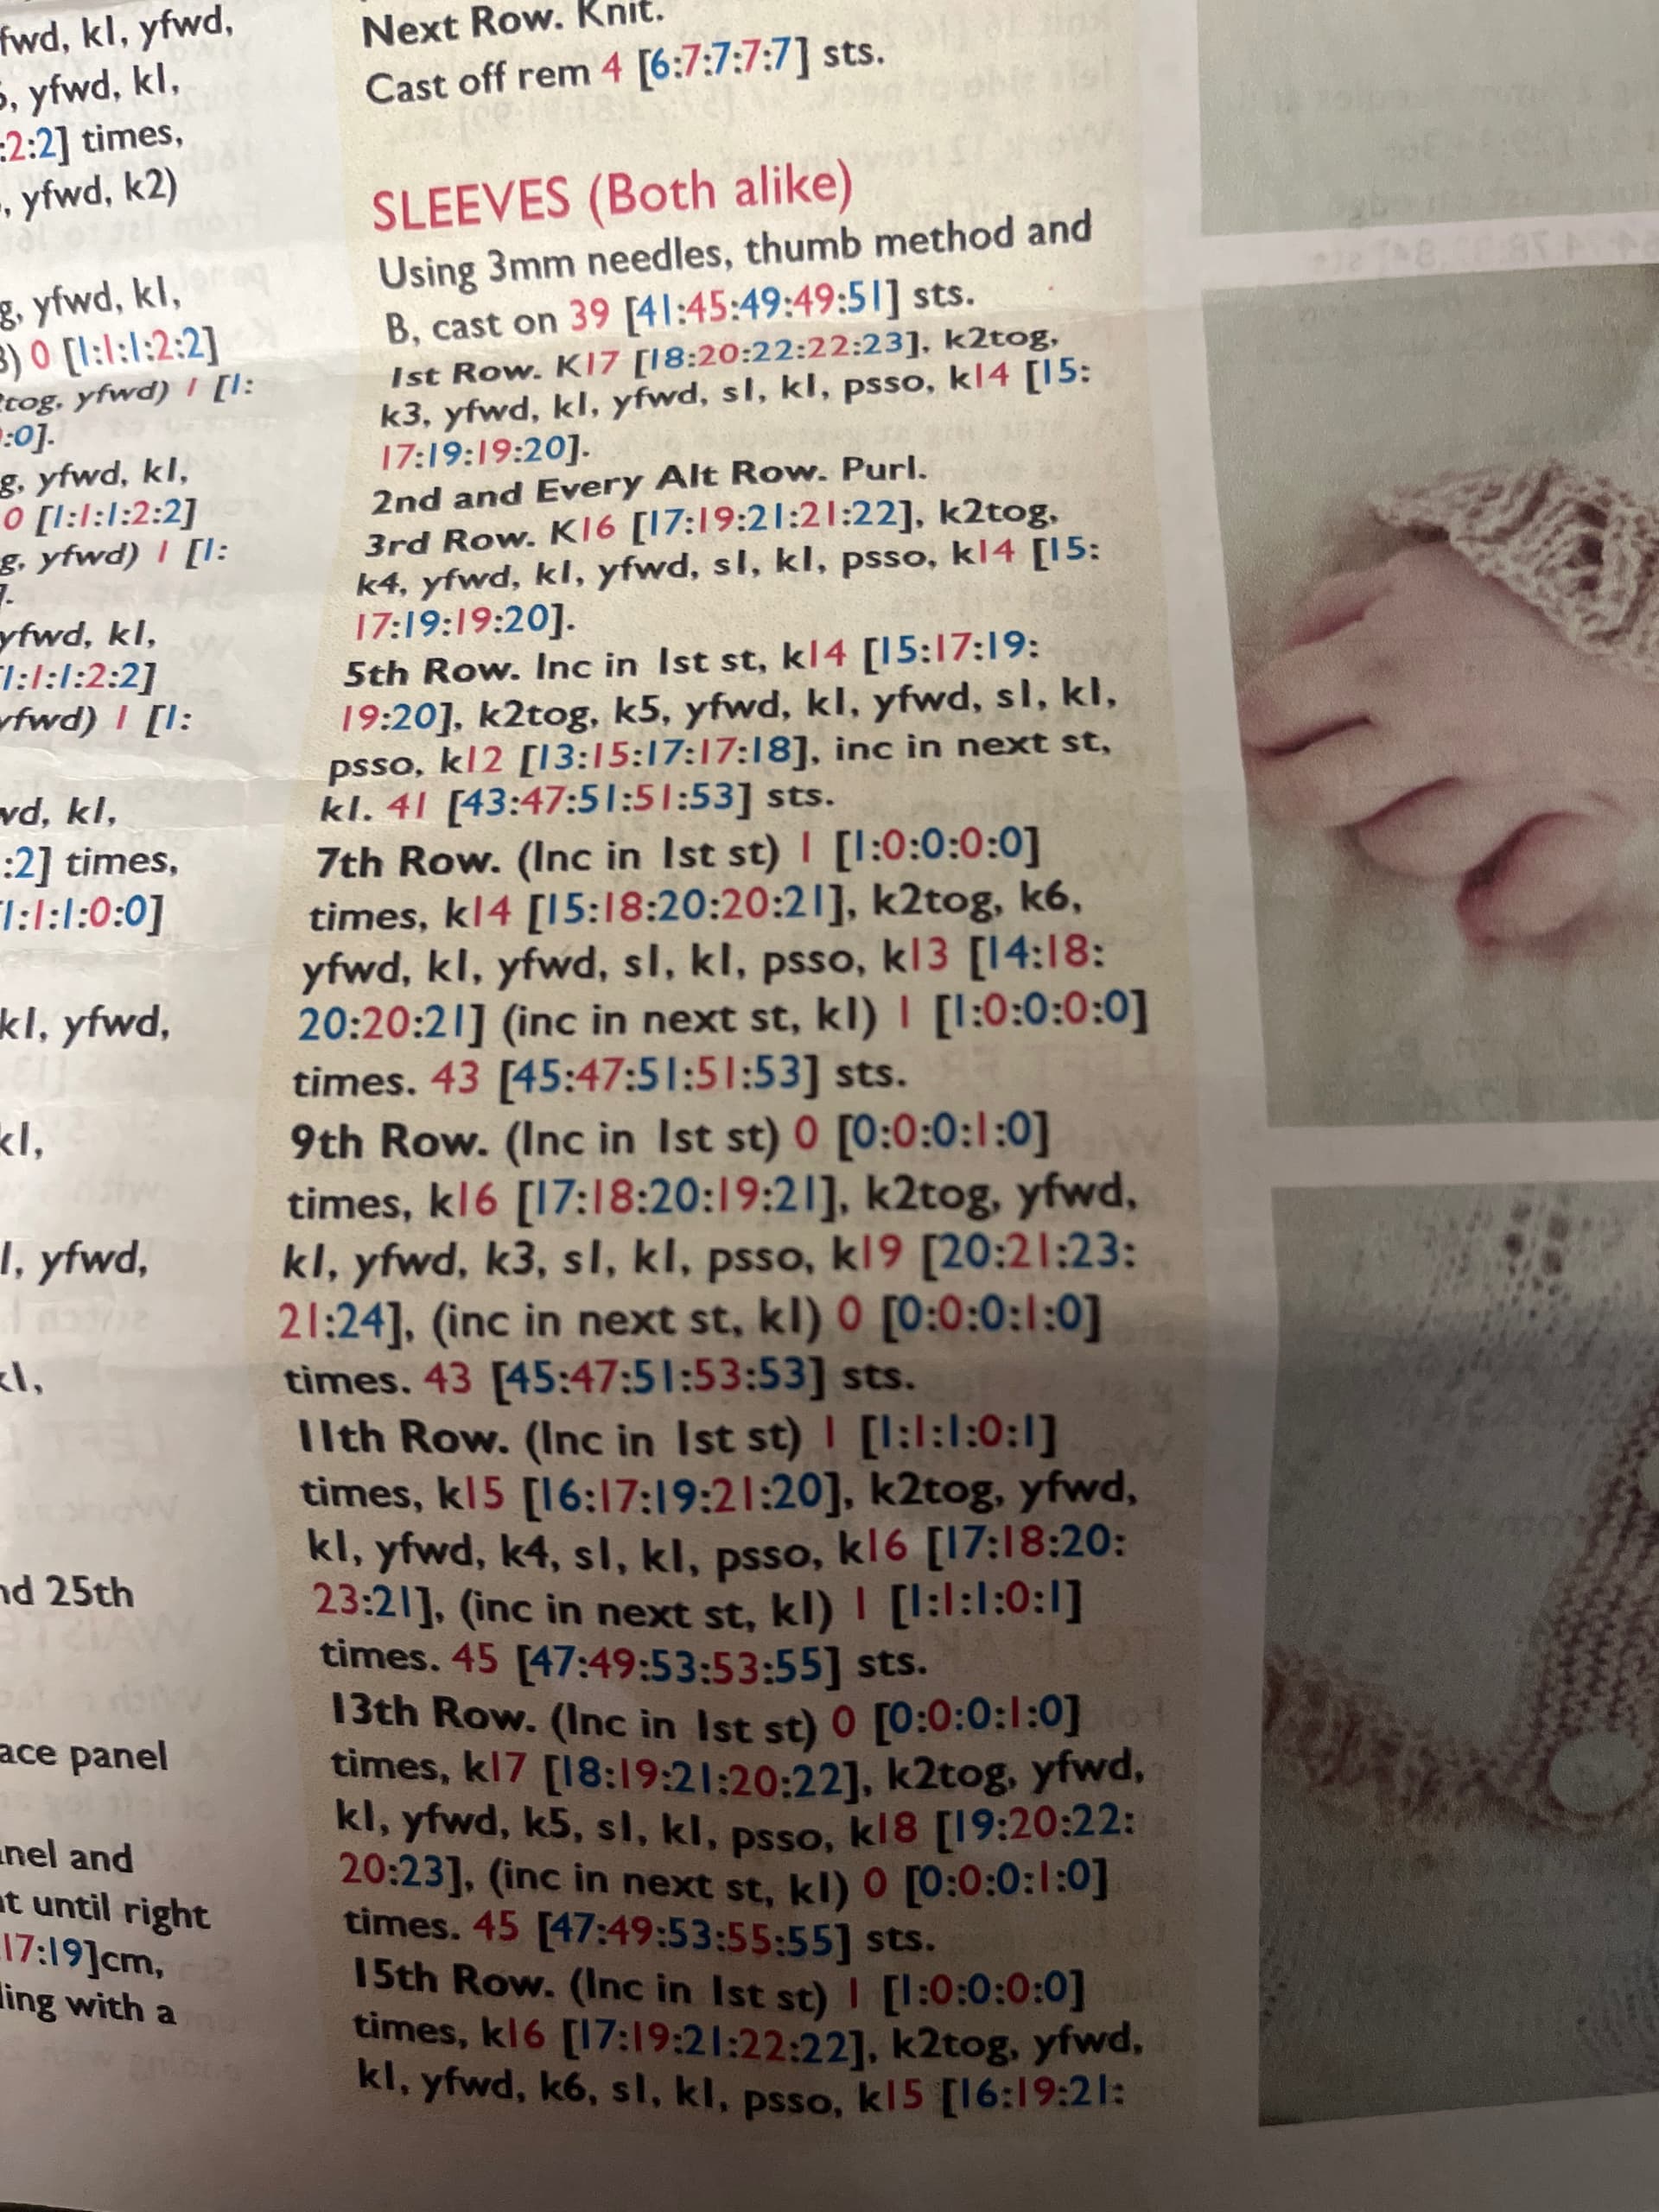 fwd, k1, yfwd,
yfwd, k1,
:2:2] times,
, yfwd, k2)
g, yfwd, k1,
) 0 [1:1:1:2:2]
tog, yfwd) 1 [1:
:0].
g, yfwd, k1,
0 [1:1:1:2:2]
g, yfwd) 1 [1:
yfwd, k1,
1:1:1:2:2]
yfwd) 1 [1:
k1,
:2] times,
1:1:1:0:0]
k1, yfwd,
k1,
yfwd,
25th
panel
and
until right
17:19]cm,
with a
Next Row. Knit.
Cast off rem 4 [6:7:7:7:7] sts.
SLEEVES (Both alike)
Using 3mm needles, thumb method and
B, cast on 39 [41:45:49:49:51] sts.
1st Row. K17 [18:20:22:22:23], k2tog,
k3, yfwd, k1, yfwd, s1, k1, psso, k14 [15:
17:19:19:20].
2nd and Every Alt Row. Purl.
3rd Row. K16 [17:19:21:21:22], k2tog,
k4, yfwd, k1, yfwd, s1, k1, psso, k14 [15:
17:19:19:20].
5th Row. Inc in 1st st, k14 [15:17:19:
19:20], k2tog, k5, yfwd, k1, yfwd, s1, k1,
psso, k12 [13:15:17:17:18], inc in next st,
k1. 41 [43:47:51:51:53] sts.
7th Row. (Inc in 1st st) 1 [1:0:0:0:0]
times, k14 [15:18:20:20:21], k2tog, k6,
yfwd, k1, yfwd, s1, k1, psso, k13 [14:18:
20:20:21] (inc in next st, k1) 1 [1:0:0:0:0]
times. 43 [45:47:51:51:53] sts.
9th Row. (Inc in 1st st) 0 [0:0:0:1:0]
times, k16 [17:18:20:19:21], k2tog, yfwd,
k1, yfwd, k3, s1, k1, psso, k19 [20:21:23:
21:24], (inc in next st, k1) 0 [0:0:0:1:0]
times. 43 [45:47:51:53:53] sts.
11th Row. (Inc in 1st st) 1 [1:1:1:0:1]
times, k15 [16:17:19:21:20], k2tog, yfwd,
k1, yfwd, k4, s1, k1, psso, k16 [17:18:20:
23:21], (inc in next st, k1) 1 [1:1:1:0:1]
times. 45 [47:49:53:53:55] sts.
13th Row. (Inc in 1st st) 0 [0:0:0:1:0]
times, k17 [18:19:21:20:22], k2tog, yfwd,
k1, yfwd, k5, s1, k1, psso, k18 [19:20:22:
20:23], (inc in next st, k1) 0 [0:0:0:1:0]
times. 45 [47:49:53:55:55] sts.
15th Row. (Inc in 1st st) 1 [1:0:0:0:0]
times, k16 [17:19:21:22:22], k2tog, yfwd,
k1, yfwd, k6, s1, k1, psso, k15 [16:19:21: